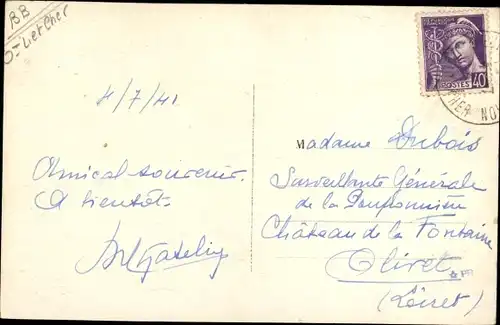 BB
O- Lir et Cher
POSTES 40
CHER NOV
4/7/41
Amical souvenir.
A bientôt
Madame Dubois
Surveillante Générale
de la Pouponnière
Château de la Fontaine
Olivet
(Loiret)